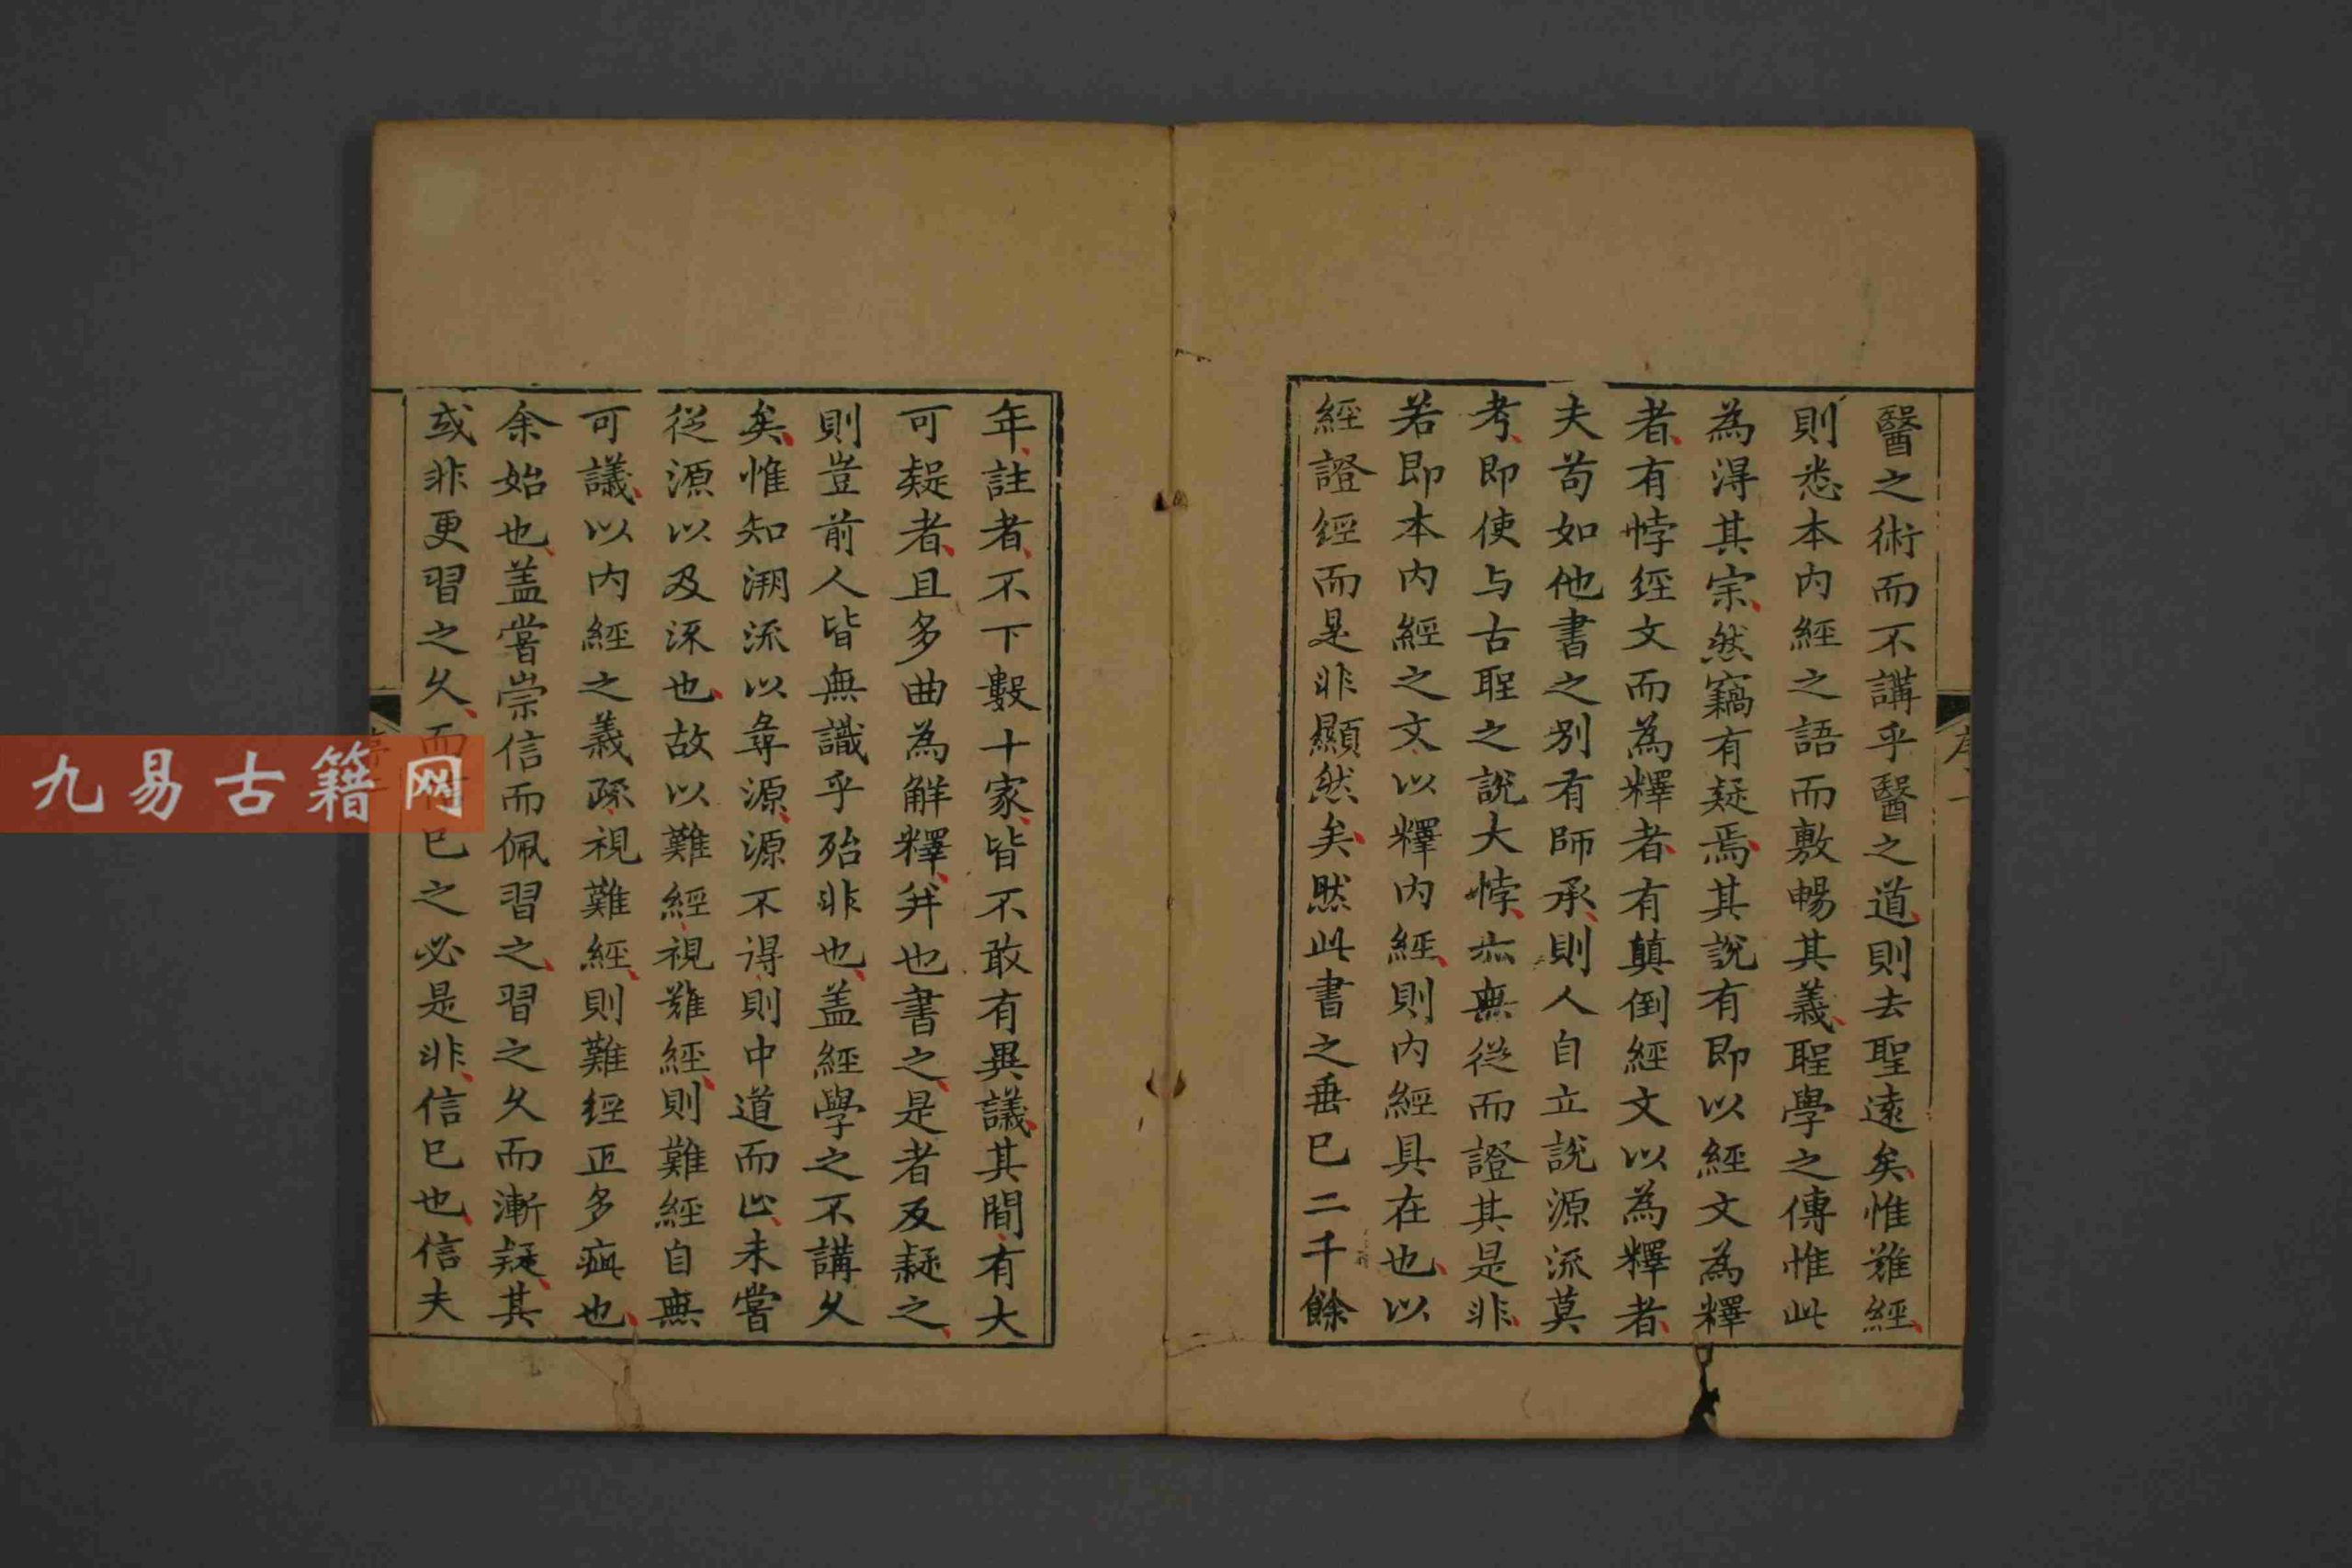 醫之術而不講乎醫之道則去聖遠矣惟難經
則悉本內經之語而敷暢其義聖學之傳惟此
為得其宗然竊有疑焉其說有即以經文為釋
者有悖經文而為釋者有顛倒經文以為釋者
夫苟如他書之別有師承則人自立說源流莫
考即使与古聖之說大悖亦無從而證其是非
若即本內經之文以釋內經則內經具在也以
經證經而是非顯然矣然此書之垂已二千餘
年註者不下數十家皆不敢有異議其間有大
可疑者且多曲為解釋并也書之是者反疑之
則豈前人皆無識乎殆非也盖經學之不講久
矣惟知溯流以尋源源不得則中道而止未嘗
從源以及流也故以難經視難經則難經自無
可議以內經之義疏視難經則難經正多疵也
余始也盖嘗崇信而佩習之習之久而漸疑其
或非更習之久而已之必是非信已也信夫
九易古籍网